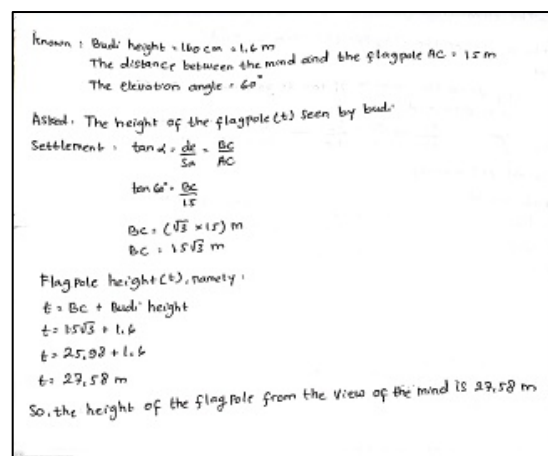 Known : Budi height = 160 cm = 1,6 m
The distance between the mind and the flagpole AC = 15 m
The elevation angle = 60°
Asked. The height of the flagpole (t) seen by budi
Settlement : tan α = de/Sa = BC/AC
tan 60° = BC/15
BC = (√3 × 15) m
BC = 15√3 m
Flag Pole height (t), namely :
t = BC + Budi height
t = 15√3 + 1,6
t = 25,98 + 1,6
t = 27,58 m
So, the height of the flag Pole from the view of the mind is 27,58 m